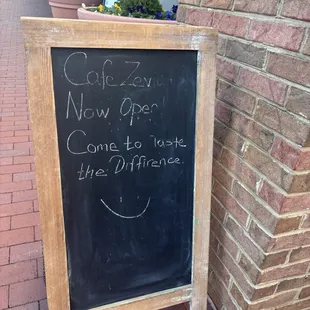 Cafe Zev
Now Open
Come to Taste
the Diffirence.